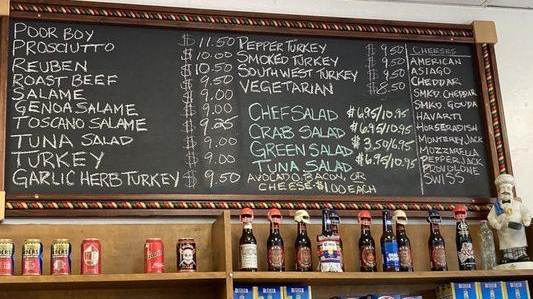 POOR BOY $ 11.50
PROSCIUTTO $ 10.00
REUBEN $ 10.50
ROAST BEEF $ 9.50
SALAME $ 9.00
GENOA SALAME $ 9.00
TOSCANO SALAME $ 9.25
TUNA SALAD $ 9.00
TURKEY $ 9.00
GARLIC HERB TURKEY $ 9.50
PEPPER TURKEY $ 9.50
SMOKED TURKEY $ 9.50
SOUTHWEST TURKEY $ 9.50
VEGETARIAN $ 8.50
CHEF SALAD $6.95/10.95
CRAB SALAD $6.95/10.95
GREEN SALAD $3.50/6.95
TUNA SALAD $6.95/10.95
AVOCADO, BACON, OR
CHEESE $1.00 EACH
CHEESES
AMERICAN
ASIAGO
CHEDDAR
SMKD. CHEDDAR
SMKD. GOUDA
HAVARTI
HORSERADISH
MONTEREY JACK
MOZZARELLA
PEPPER JACK
PROVOLONE
SWISS